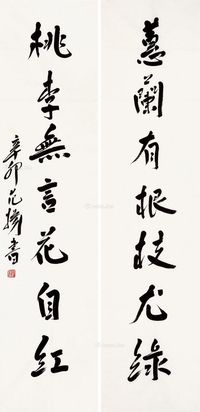 蕙蘭有根枝尤綠
桃李無言花自紅
辛卯 范擣書